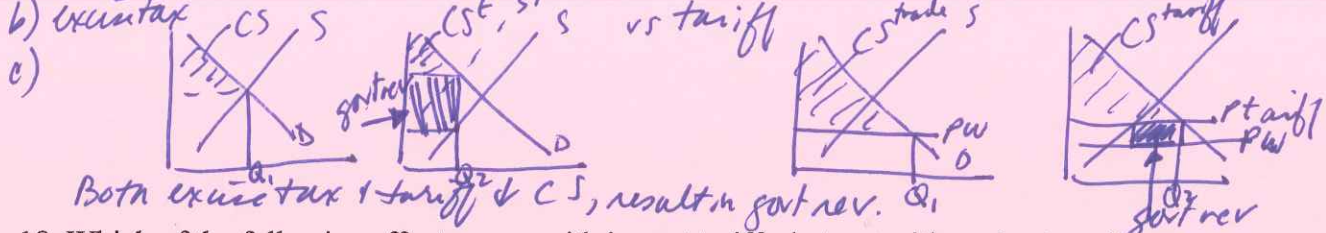 b) excise tax vs tariff
c)
CS S
CS^t, S
govt rev
D
Q1
D
Q2
CS^trade S
PW
D
Q1
CS^tariff
P tariff
PW
Q2
govt rev
Both excise tax & tariff ↓ CS, result in govt rev.